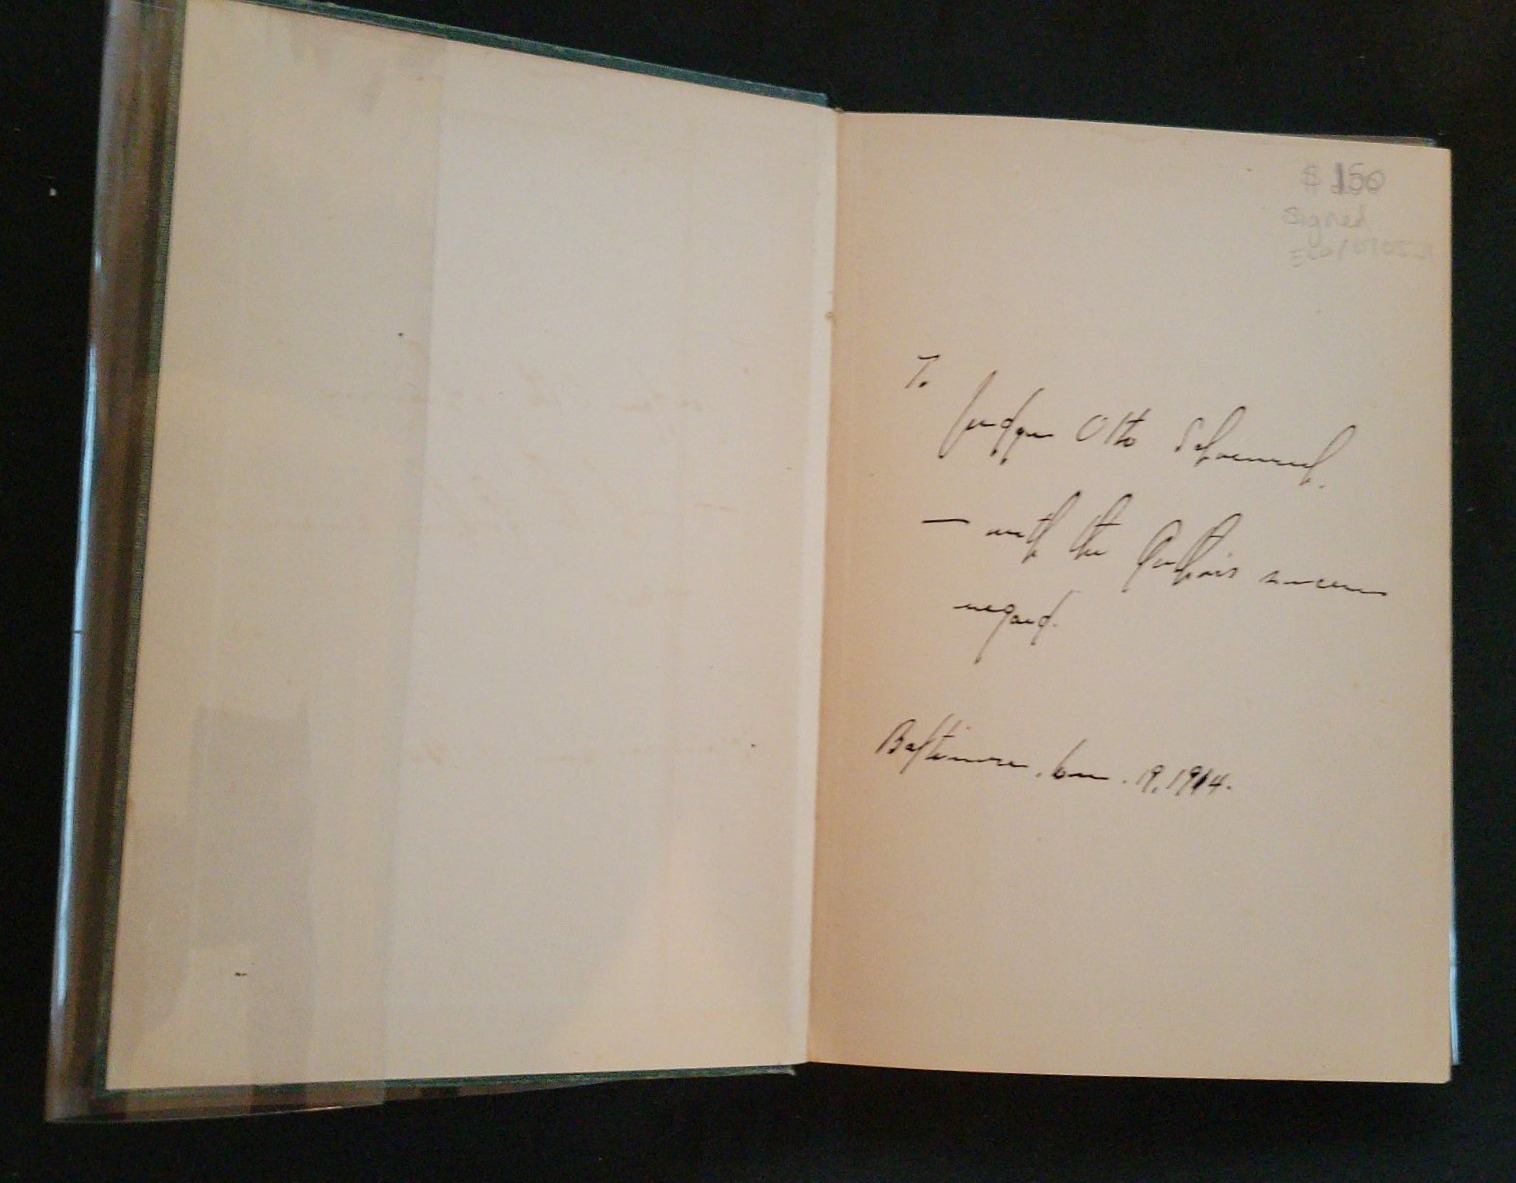 $150
Signed
To
Judge Otto Schoenrich.
— with the Author's sincere
regard.
Baltimore, 19, 1914.